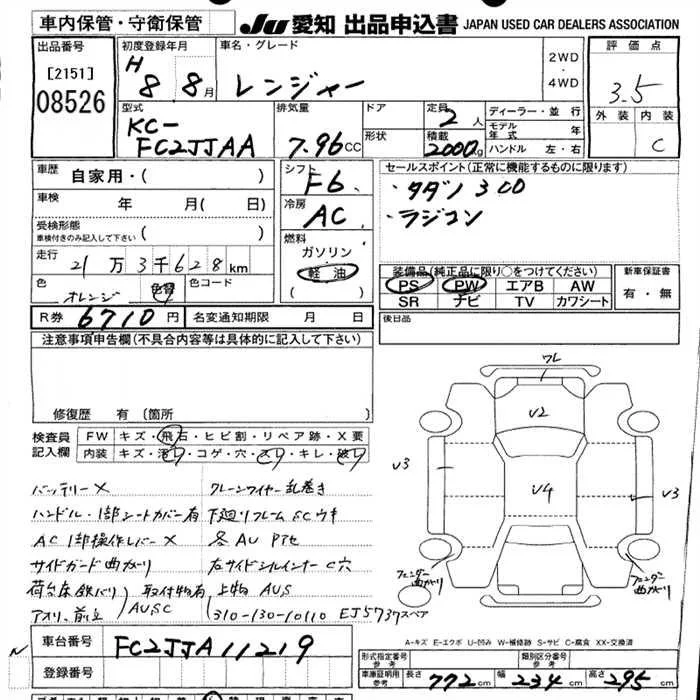 車内保管・守衛保管
JU 愛知 出品申込書 JAPAN USED CAR DEALERS ASSOCIATION
出品番号
[2151]
08526
初度登録年月
H 8 8月
車名・グレード
レンジャー
2WD
・
4WD
評価点
3.5
外装 内装
C
型式
KC-
FC2JJAA
排気量
7.96cc
ドア
形状
定員
2人
積載
2000kg
ディーラー・並行
モデル年式 年
ハンドル 左・右
車歴
自家用・( )
車検 年 月( 日)
受検形態
車検付きのみ記入して下さい ( )
走行
21万3千628km
色
オレンジ
色替
色コード
シフト
F6
冷房
AC
燃料
ガソリン
軽油
( )
セールスポイント(正常に機能するものに限ります)
・タダノ 3t
・ラジコン
装備品(純正品に限り○をつけてください)
PS PW エアB AW
SR ナビ TV カワシート
新車保証書
有・無
後日品
R券 6710円 名変通知期限 月 日
注意事項申告欄(不具合内容等は具体的に記入して下さい)
修復歴 有(箇所
検査員
記入欄
FW キズ・飛石・ヒビ割・リペア跡・X要
内装 キズ・汚レ・コゲ・穴・スレ・キレ・破レ
バッテリーX
クレーンワイヤー乱巻き
ハンドル・1部シートカバー有
下廻りフレームSCウキ
AC1部操作レバーX
各AU Pアセ
サイドガード曲がり
左サイドシルインナーC穴
荷台床鉄バリ
取付物有
上物AUS
アオリ、前立
AUSC
(310-130-10110 EJ5737スペア
ワレ
V2
V3
V4
V3
フェンダー曲がり
フェンダー曲がり
A-キズ E-エクボ U-凹み W-補修跡 S-サビ C-腐食 XX-交換済
車台番号
FC2JJA11219
登録番号
形式指定番号
参考
類別区分番号
参考
車庫証明用
参考
長さ 772cm 幅 234cm 高さ 295cm